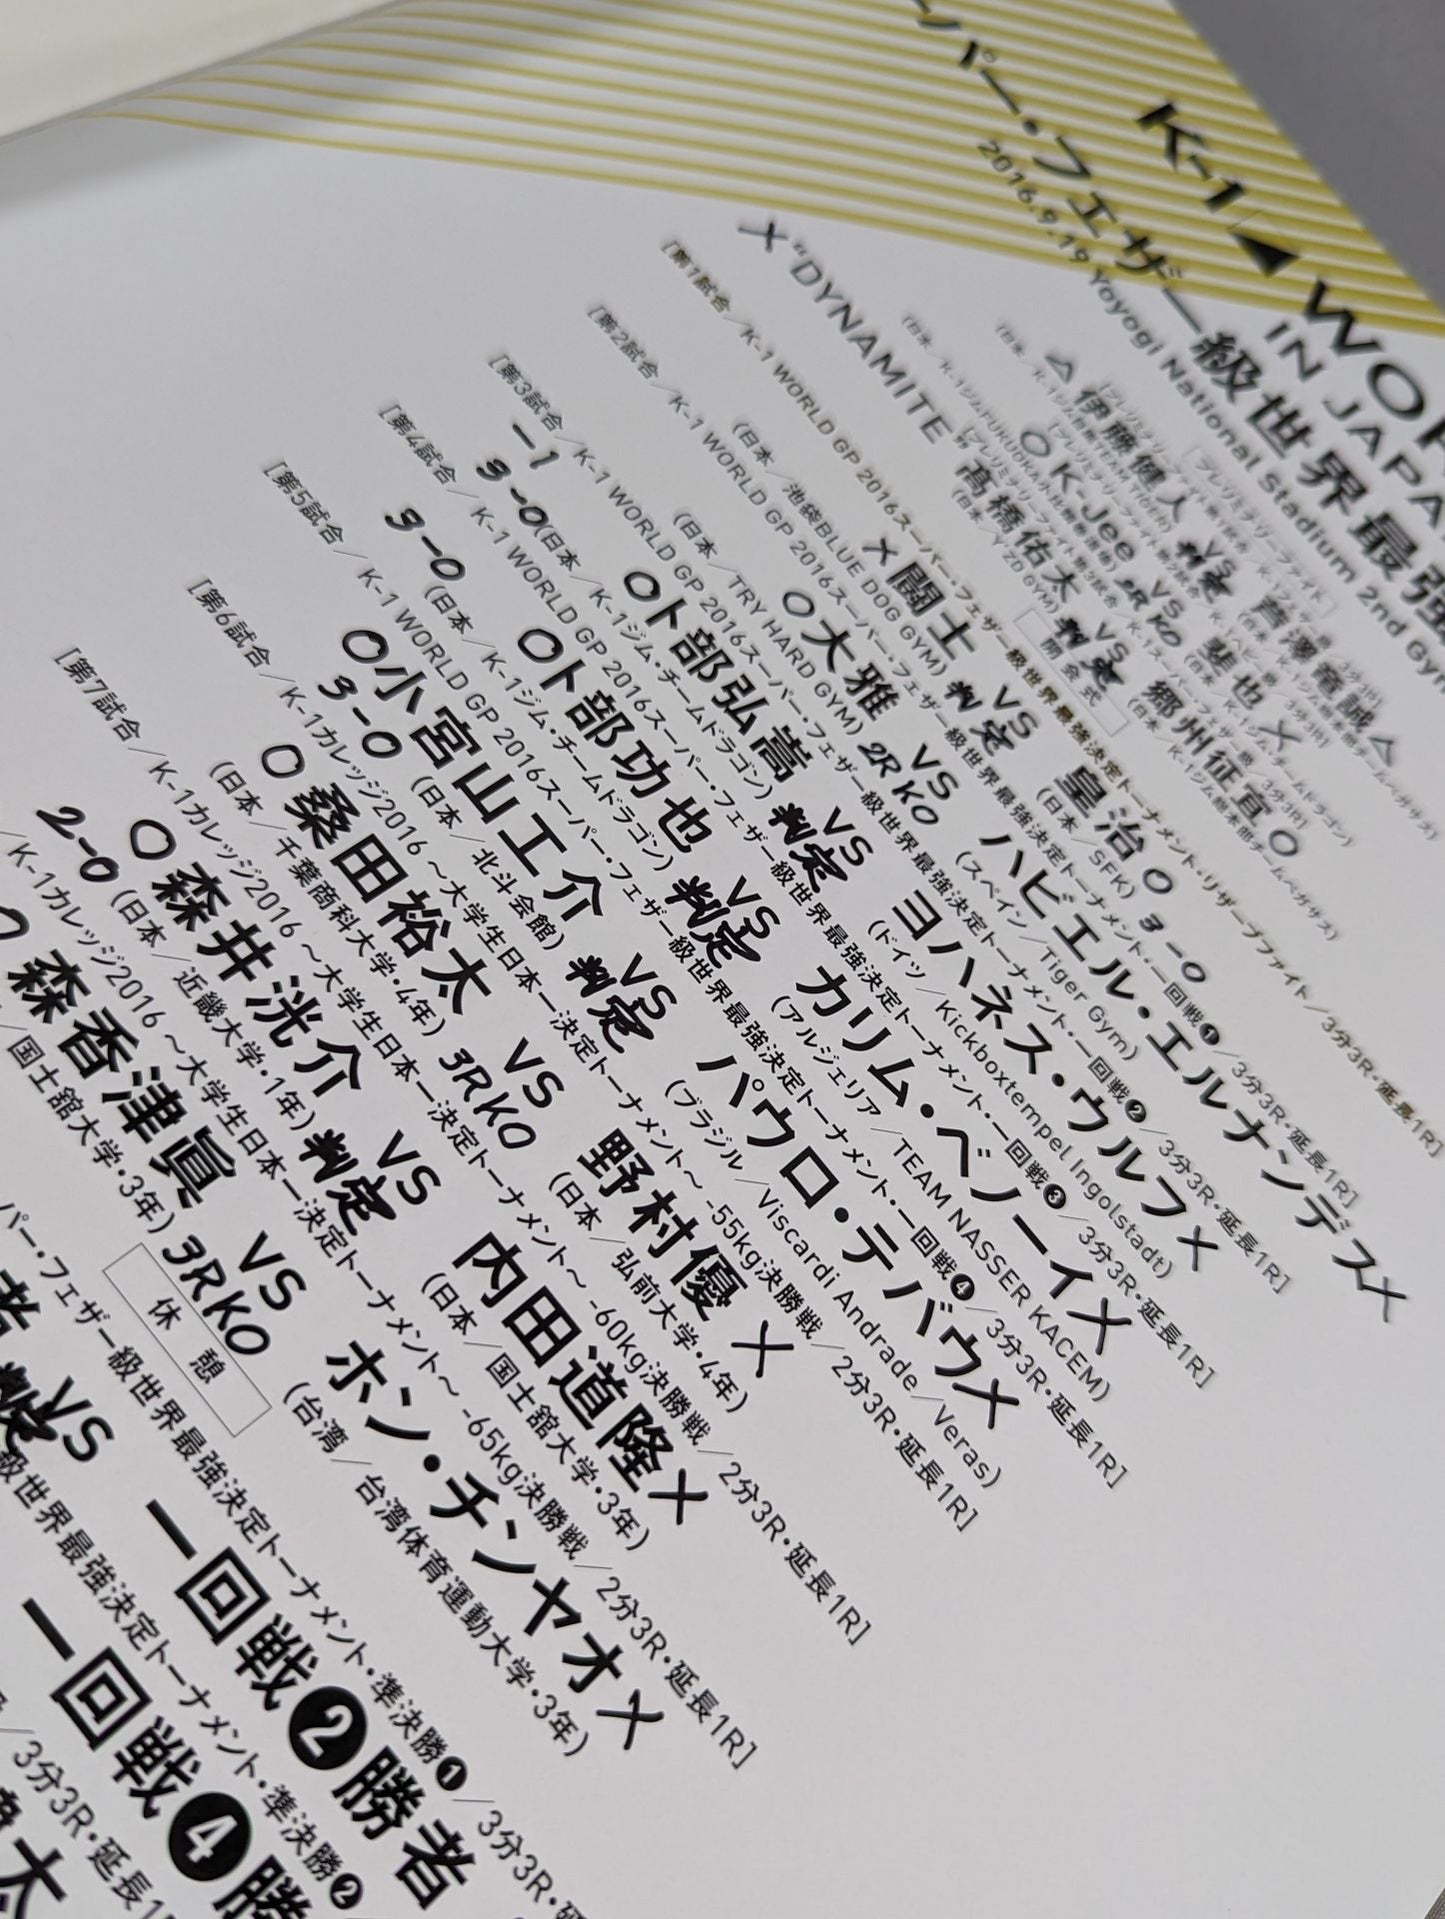 K-1 WOR
IN JAPA
ーパー・フェザー級世界最強
2016.9.19 Yoyogi National Stadium 2nd Gym
[プレリミナリーファイト]
△ 伊藤健人 VS 芦澤竜誠 △
判定
○ K-Jee VS 斐也 ×
2R KO
× "DYNAMITE" 髙橋佑太 VS 郷州征宜 ○
(日本/Y'ZD GYM) 判定
開会式
[第1試合/K-1 WORLD GP 2016スーパー・フェザー級世界最強決定トーナメント・リザーブファイト/3分3R・延長1R]
× 闘士 VS 皇治 ○ 3-0
(日本/池袋BLUE DOG GYM) 判定 (日本/SFK)
[第2試合/K-1 WORLD GP 2016スーパー・フェザー級世界最強決定トーナメント・一回戦❶/3分3R・延長1R]
○ 大雅 VS ハビエル・エルナンデス ×
(日本/TRY HARD GYM) 2R KO (スペイン/Tiger Gym)
[第3試合/K-1 WORLD GP 2016スーパー・フェザー級世界最強決定トーナメント・一回戦❷/3分3R・延長1R]
○ 卜部弘嵩 VS ヨハネス・ウルフ ×
3-0 (日本/K-1ジム・チームドラゴン) 判定 (ドイツ/Kickboxtempel Ingolstadt)
[第4試合/K-1 WORLD GP 2016スーパー・フェザー級世界最強決定トーナメント・一回戦❸/3分3R・延長1R]
○ 卜部功也 VS カリム・ベノーイ ×
3-0 (日本/K-1ジム・チームドラゴン) 判定 (アルジェリア/TEAM NASSER KACEM)
[第5試合/K-1 WORLD GP 2016スーパー・フェザー級世界最強決定トーナメント・一回戦❹/3分3R・延長1R]
○ 小宮山工介 VS パウロ・テバウ ×
3-0 (日本/北斗会館) 判定 (ブラジル/Viscardi Andrade/Veras)
[第6試合/K-1カレッジ2016 〜大学生日本一決定トーナメント〜 -55kg決勝戦/2分3R・延長1R]
○ 桑田裕太 VS 野村優 ×
(日本/千葉商科大学・4年) 3RKO (日本/弘前大学・4年)
[第7試合/K-1カレッジ2016 〜大学生日本一決定トーナメント〜 -60kg決勝戦/2分3R・延長1R]
○ 森井洸介 VS 内田道隆 ×
2-0 (日本/近畿大学・1年) 判定 (日本/国士舘大学・3年)
/K-1カレッジ2016 〜大学生日本一決定トーナメント〜 -65kg決勝戦/2分3R・延長1R]
○ 森香津眞 VS ホン・チンヤオ ×
/国士舘大学・3年) 3RKO (台湾/台湾体育運動大学・3年)
休憩
パー・フェザー級世界最強決定トーナメント・準決勝❶/3分3R・延
者 VS 一回戦❷勝者
判定
級世界最強決定トーナメント・準決勝❷
一回戦❹勝
/3分3R・延長1
太